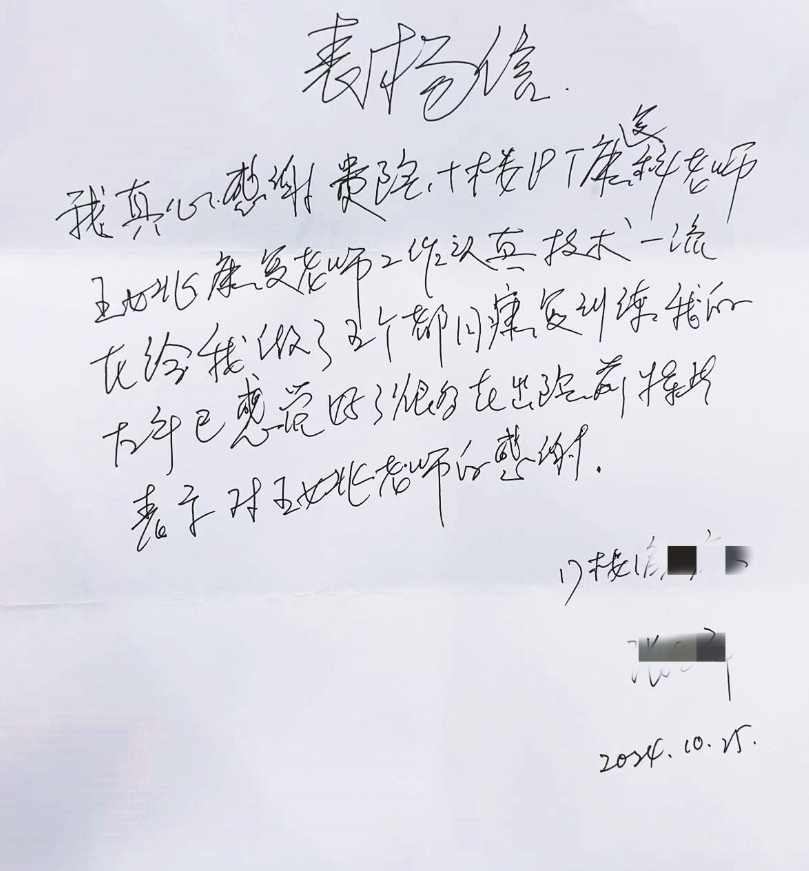 表扬信.
我真心感谢贵院十楼PT康复科老师
王女兆康复老师工作认真技术一流
在给我做了五个都门康复训练我的
右午已感觉好了很多在出院前特此
表示对王女兆老师的感谢.
17楼
2024.10.25.